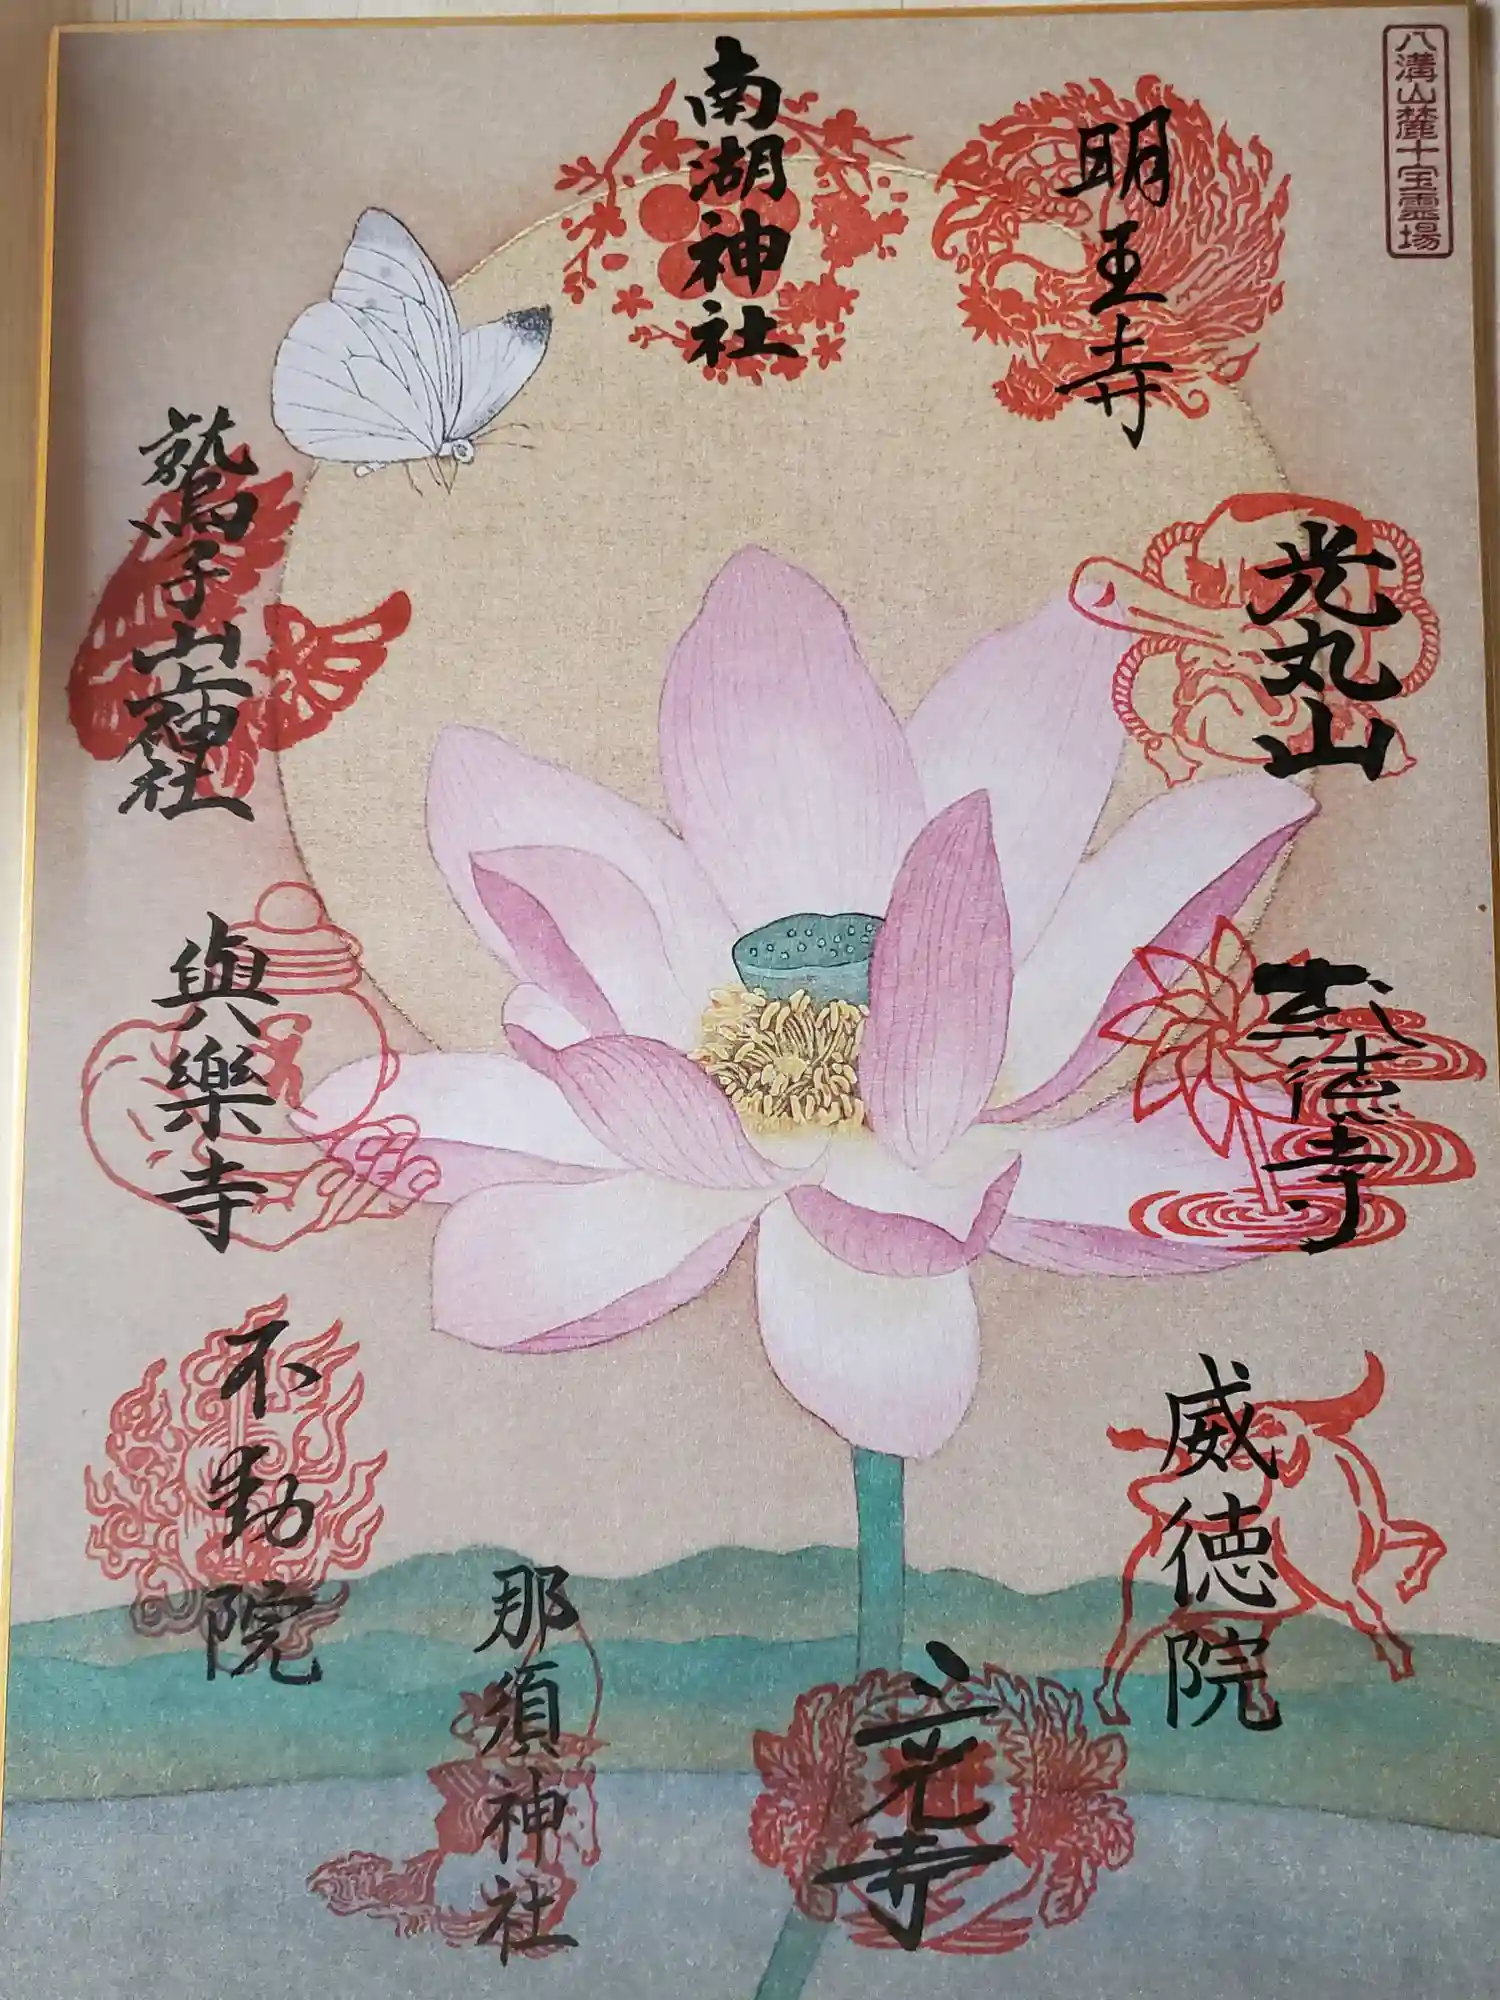 八溝山麓十宝霊場
明王寺
南湖神社
光丸山
威徳院
三光寺
那須神社
不動院
與樂寺
鷲子山上神社